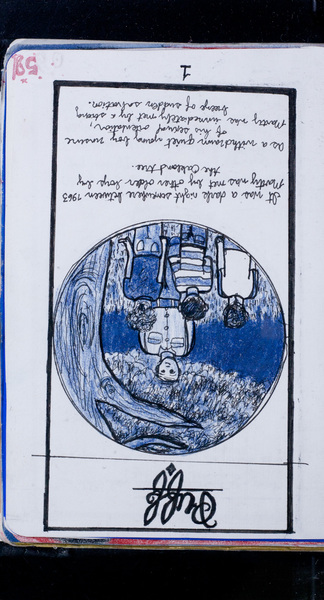 Puff
It was a dark night somewhere between 1963
Marty was met by other older boys by
the tree.
As a withdrawn quiet young boy insure
of his sexual orientation.
Marty was immediately met by a strong
breeze of sudden salvation.
1